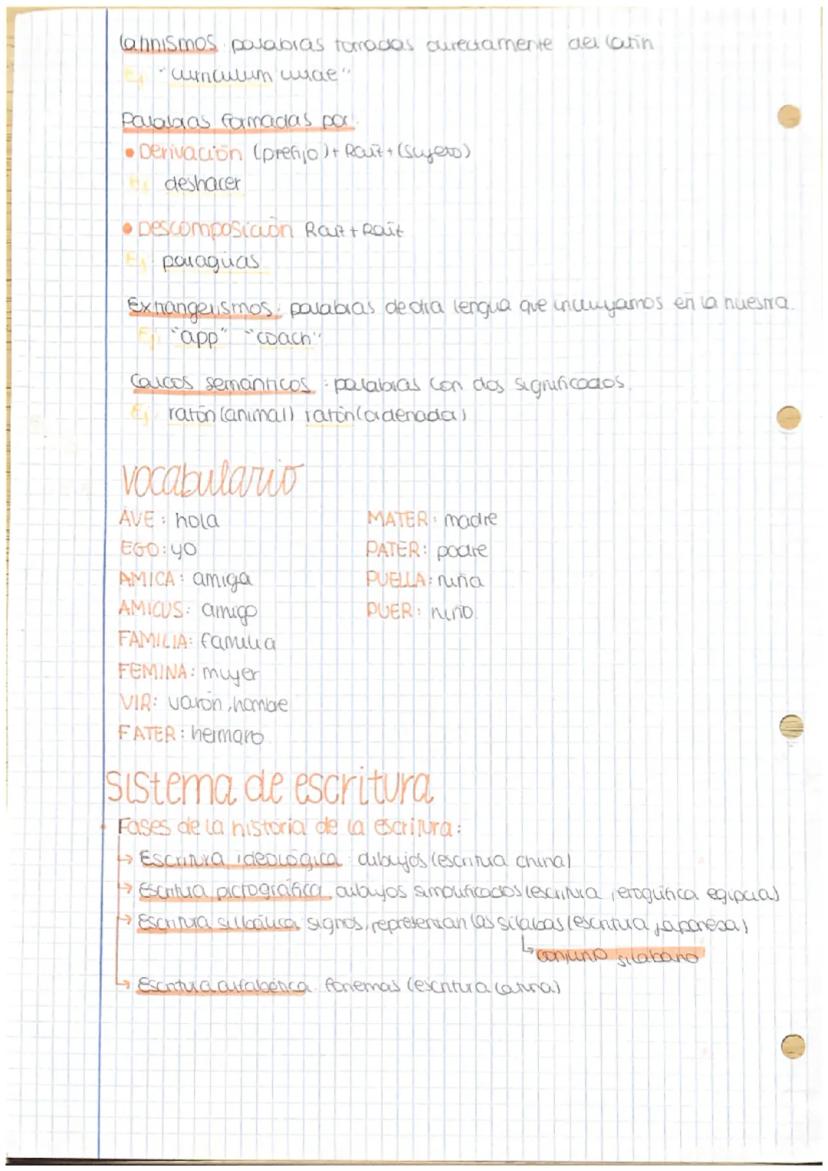 latinismos: palabras tomadas directamente del latín
Ej "curriculum vitae"
Palabras formadas por:
• Derivación (prefijo) + Raíz + (sufero)
Ej deshacer
• Descomposición Raíz + Raíz
Ej paraguas
Extrangerismos: palabras de otra lengua que incluyamos en la nuestra.
Ej "app" "coach"
Calcos semánticos: palabras con dos significados.
Ej ratón (animal) ratón (ordenador)
vocabulario
AVE: hola
EGO: yo
AMICA: amiga
AMICUS: amigo
FAMILIA: familia
FEMINA: mujer
VIR: varón, hombre
FATER: hermano
MATER: madre
PATER: padre
PUELLA: niña
PUER: niño
sistema de escritura
Fases de la historia de la escritura:
↳ Escritura ideológica: dibujos (escritura china)
↳ Escritura pictográfica: dibujos simplificados (escritura jeroglífica egipcia)
↳ Escritura silbálica signos, representan las sílabas (escritura japonesa)
↳ conjunto silabario
↳ Escritura alfabética: fonemas (escritura latina)